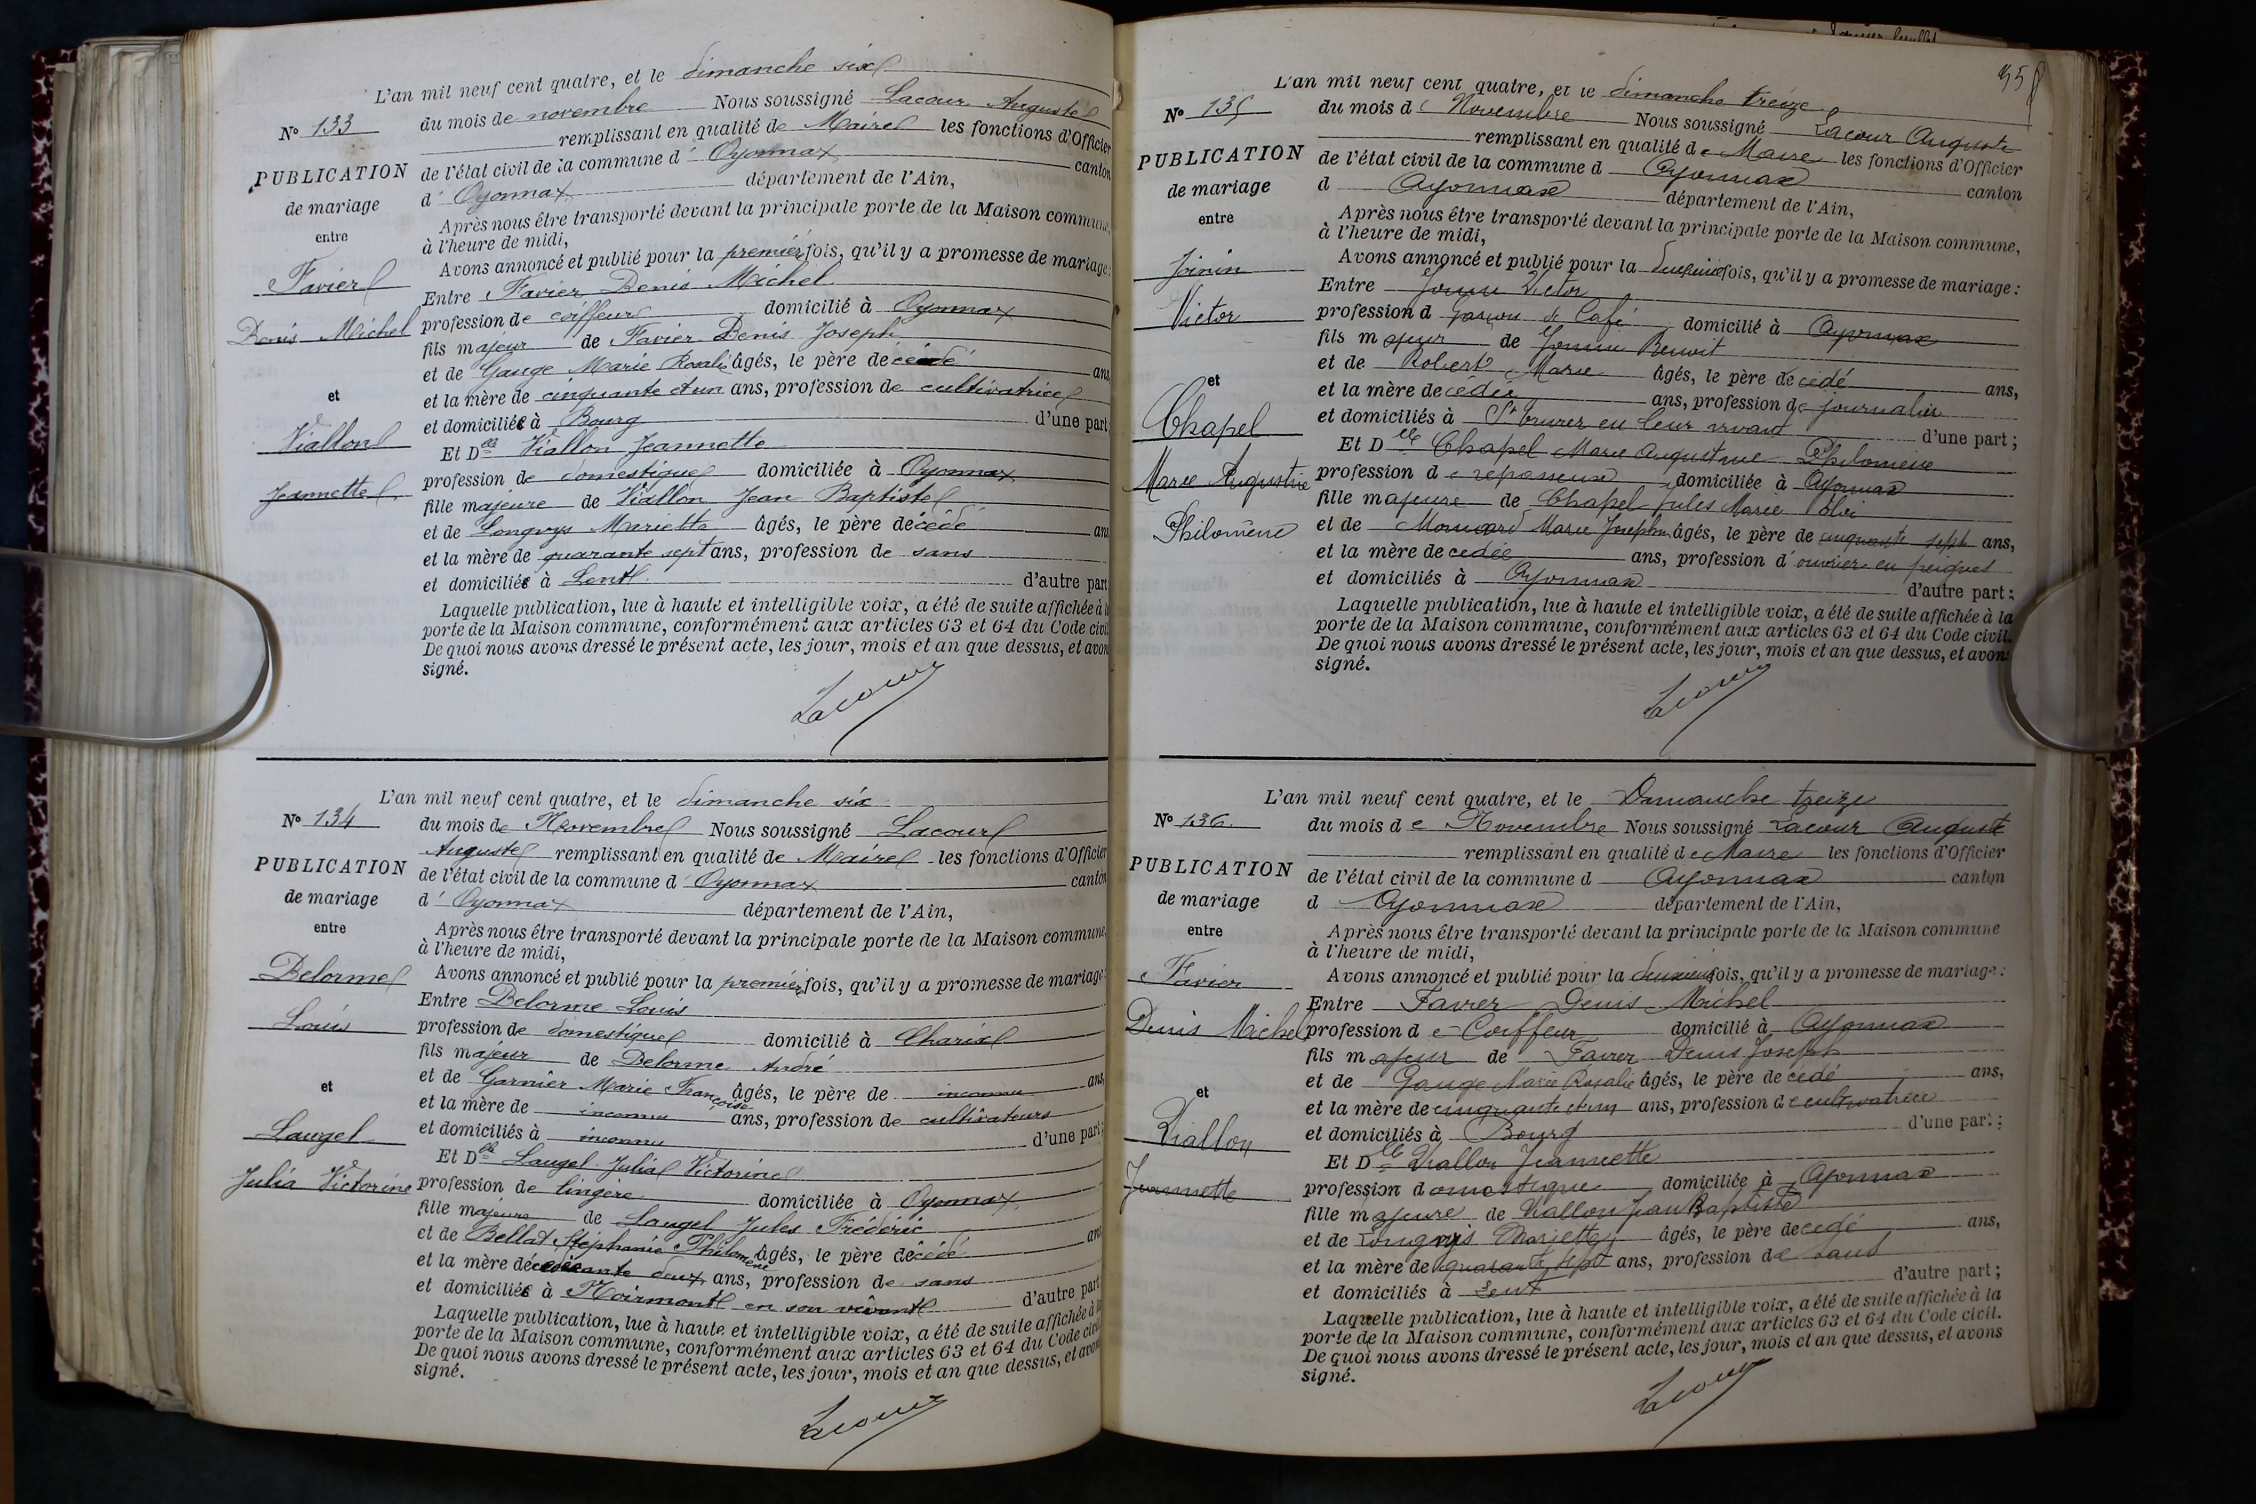 L'an mil neuf cent quatre, et le dimanche six
N° 133
du mois de novembre Nous soussigné Lacour Auguste
remplissant en qualité de Maire les fonctions d'Officier
PUBLICATION
de l'état civil de la commune d' Oyonnax canton
d' Oyonnax département de l'Ain,
de mariage
entre
Après nous être transporté devant la principale porte de la Maison commune,
à l'heure de midi,
Avons annoncé et publié pour la première fois, qu'il y a promesse de mariage:
Favier
Denis Michel
Entre Favier Denis Michel
profession de coiffeur domicilié à Oyonnax
fils majeur de Favier Denis Joseph
et de Gauge Marie Rosalie âgés, le père décédé ans
et
et la mère de cinquante et un ans, profession de cultivatrice
et domiciliée à Bourg d'une part
Viallon
Jeannette
Et Dlle Viallon Jeannette
profession de domestique domiciliée à Oyonnax
fille majeure de Viallon Jean Baptiste
et de Longvys Mariette âgés, le père décédé ans
et la mère de quarante sept ans, profession de sans
et domiciliée à Lent d'autre part
Laquelle publication, lue à haute et intelligible voix, a été de suite affichée à la
porte de la Maison commune, conformément aux articles 63 et 64 du Code civil
De quoi nous avons dressé le présent acte, les jour, mois et an que dessus, et avons
signé.
Lacour
L'an mil neuf cent quatre, et le dimanche six
N° 134
du mois de Novembre Nous soussigné Lacour
Auguste remplissant en qualité de Maire les fonctions d'Officier
PUBLICATION
de l'état civil de la commune d' Oyonnax canton
de mariage
d' Oyonnax département de l'Ain,
entre
Après nous être transporté devant la principale porte de la Maison commune
à l'heure de midi,
Avons annoncé et publié pour la première fois, qu'il y a promesse de mariage:
Delorme
Louis
Entre Delorme Louis
profession de domestique domicilié à Charix
fils majeur de Delorme André
et
et de Garnier Marie Françoise âgés, le père de inconnu ans,
et la mère de inconnu ans, profession de cultivateurs
et domiciliés à inconnu d'une part;
Laugel
Julia Victorine
Et Dlle Laugel Julia Victorine
profession de lingère domiciliée à Oyonnax
fille majeure de Laugel Jules Frédéric
et de Bellat Stéphanie Philomène âgés, le père décédé ans
et la mère deux ans, profession de sans
et domiciliée à Noirmont en son vivant d'autre part
Laquelle publication, lue à haute et intelligible voix, a été de suite affichée à la
porte de la Maison commune, conformément aux articles 63 et 64 du Code civil
De quoi nous avons dressé le présent acte, les jour, mois et an que dessus, et avons
signé.
Lacour
L'an mil neuf cent quatre, et le dimanche treize
N° 135
du mois de Novembre Nous soussigné Lacour Auguste
remplissant en qualité de Maire les fonctions d'Officier
PUBLICATION
de l'état civil de la commune d Oyonnax canton
de mariage
d Oyonnax département de l'Ain,
entre
Après nous être transporté devant la principale porte de la Maison commune,
à l'heure de midi,
Avons annoncé et publié pour la deuxième fois, qu'il y a promesse de mariage:
Victor
Entre Victor
profession d garçon de Café domicilié à Oyonnax
fils majeur de Benoit
et de Robert Marie âgés, le père décédé ans,
et
et la mère décédée ans, profession de journalier
et domiciliés à en leur vivant d'une part;
Chapel
Marie Augustine
Philomène
Et Dlle Chapel Marie Augustine Philomène
profession de repasseuse domiciliée à Oyonnax
fille majeure de Chapel Jules Marie
et de Marie âgés, le père de cinquante sept ans,
et la mère décédée ans, profession d'ouvrier en peignes
et domiciliés à Oyonnax d'autre part:
Laquelle publication, lue à haute et intelligible voix, a été de suite affichée à la
porte de la Maison commune, conformément aux articles 63 et 64 du Code civil.
De quoi nous avons dressé le présent acte, les jour, mois et an que dessus, et avons
signé.
Lacour
L'an mil neuf cent quatre, et le Dimanche treize
N° 136
du mois de Novembre Nous soussigné Lacour Auguste
remplissant en qualité de Maire les fonctions d'Officier
PUBLICATION
de l'état civil de la commune d Oyonnax canton
de mariage
d Oyonnax département de l'Ain,
entre
Après nous être transporté devant la principale porte de la Maison commune
à l'heure de midi,
Avons annoncé et publié pour la deuxième fois, qu'il y a promesse de mariage:
Favier
Denis Michel
Entre Favier Denis Michel
profession de Coiffeur domicilié à Oyonnax
fils majeur de Favier Denis Joseph
et de Gauge Marie Rosalie âgés, le père décédé ans,
et
et la mère de cinquante et un ans, profession de cultivatrice
et domiciliés à Bourg d'une part;
Viallon
Jeannette
Et Dlle Viallon Jeannette
profession domestique domiciliée à Oyonnax
fille majeure de Viallon Jean Baptiste
et de Longvys Mariette âgés, le père décédé ans,
et la mère de quarante sept ans, profession de sans
et domiciliés à Lent d'autre part;
Laquelle publication, lue à haute et intelligible voix, a été de suite affichée à la
porte de la Maison commune, conformément aux articles 63 et 64 du Code civil.
De quoi nous avons dressé le présent acte, les jour, mois et an que dessus, et avons
signé.
Lacour